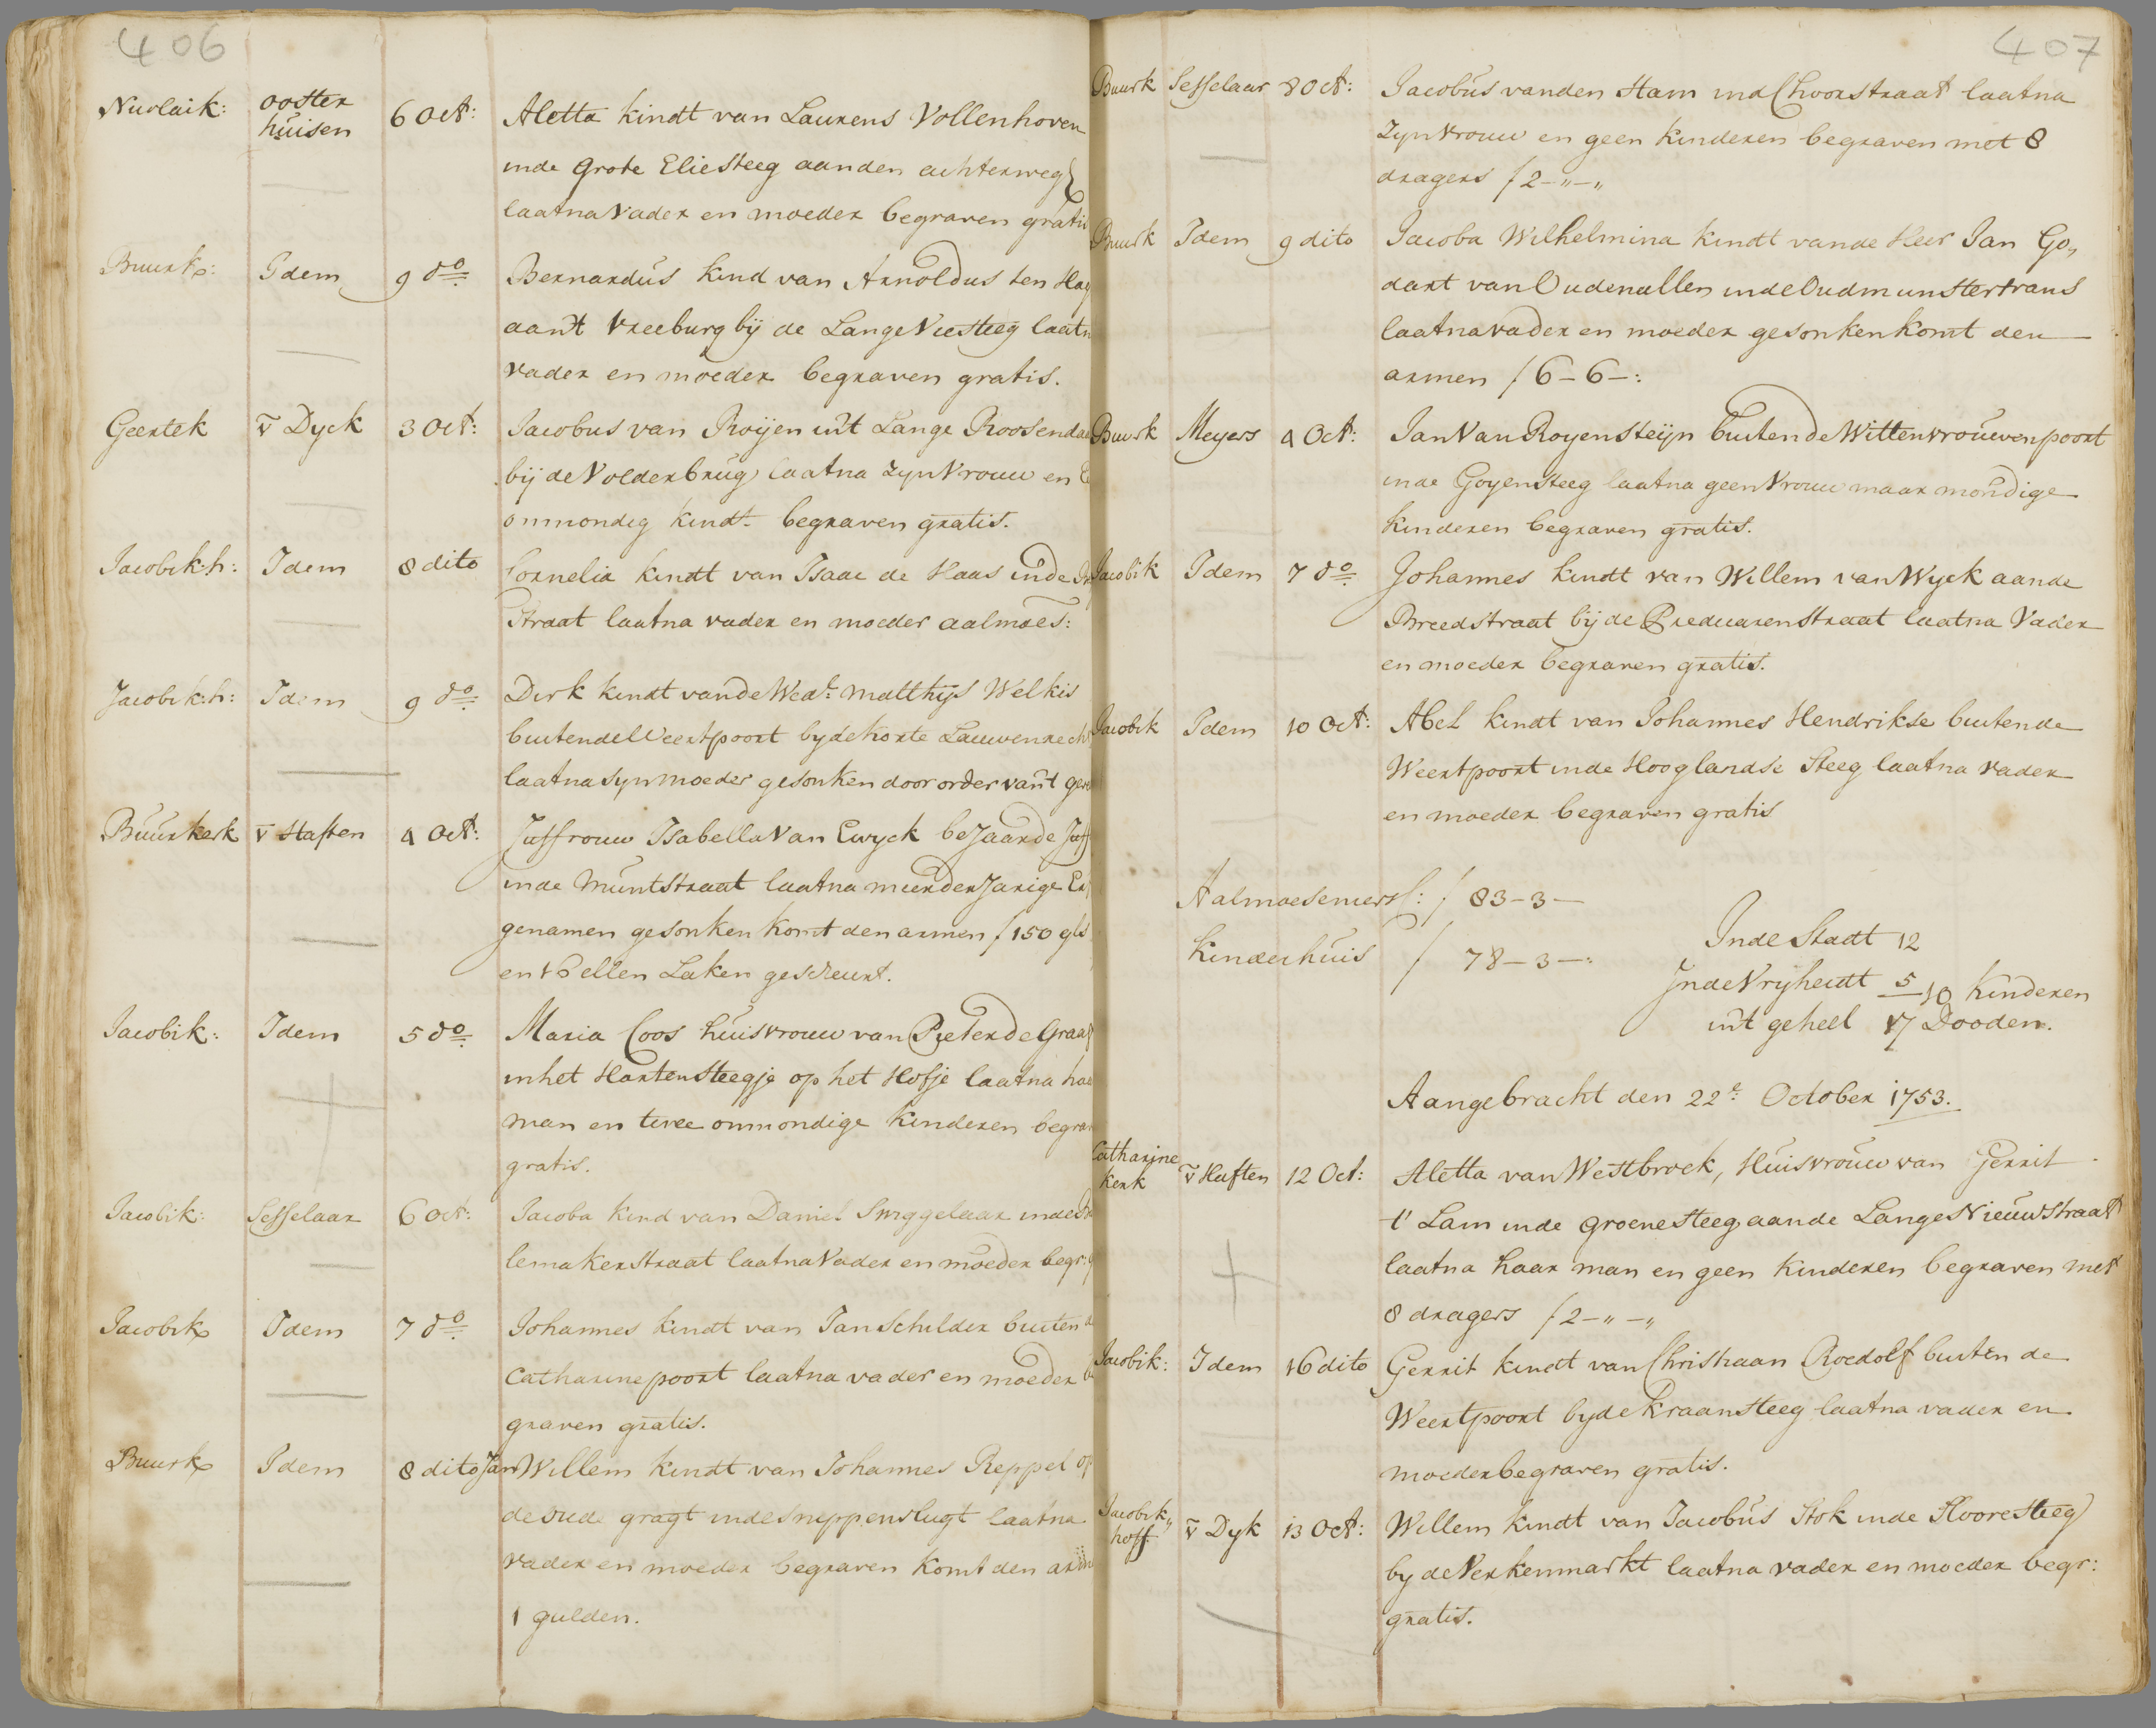 406
Nicolaik: ooster huisen 6 Oct: Aletta kindt van Laurens Vollenhoven
inde Grote Eliesteeg aanden achterweg
laatna Vader en moeder begraven gratis
Buurk: Idem 9 do Bernardus kind van Arnoldus ten Hag
aan't Vreeburg bij de Lange Viesteeg laatn
vader en moeder begraven gratis.
Geertek v Dyck 3 Oct: Jacobus van Roijen int Lange Roosendaa
bij de Volderbrug laatna zyn Vrouw en
onmondig kindt begraven gratis.
Jacobik:h: Idem 8 dito Cornelia kindt van Isaac de Haas inde
Straat laatna vader en moeder aalmoes:
Jacobik:h: Idem 9 do Dirk kindt vande Wedr. Matthijs Welkis
buitende Weertpoort byde korte Lauwerrech
laatna syn moeder gesonken door order van't gere
Buurkerk v Haften 4 Oct: Juffrouw Isabella Van Ewyck beJaarde Juff
inde Muntstraat laatna meerderJarige Er
genamen gesonken komt den armen ƒ 150 gls
en 16 ellen Laken gescheurt.
Jacobik: Idem 5 do Maria Coos huisvrouw van Pieter de Graaf
inhet Hartensteegje op het Hofje laatna haa
man en twee onmondige kinderen begra
gratis.
Jacobik: Sesselaar 6 Oct: Jacoba kind van Daniel Sniggelaar inde
lemakerstraat laatna Vader en moeder begr: g
Jacobik Idem 7 do Johannes kindt van Jan Schilder buiten d
Catharine poort laatna vader en moeder be
graven gratis.
Buurk Idem 8 dito Jan Willem kindt van Johannes Reppel op
de oude gragt inde Sneppenslugt laatna
vader en moeder begraven komt den arme
1 gulden.
407
Buurk Sesselaar 8 Oct: Jacobus vanden Ham ind Choorstraat laatna
zyn Vrouw en geen kinderen begraven met 8
dragers ƒ 2-"-"
Buurk Idem 9 dito Jacoba Wilhelmina kindt vande Heer Jan Go„
dart van Oudenallen inde Oudmunstertrans
laatna vader en moeder gesonken komt den
armen ƒ 6-6-:
Buurk Meyers 4 Oct: Jan Van Royensteijn buiten de Wittenvrouwenpoort
inde Goyensteeg laatna geen Vrouw maar mondige
kinderen begraven gratis.
Jacobik Idem 7 do Johannes kindt van Willem van Wyck aande
Breedstraat bij de Predicarenstraat laatna Vader
en moeder begraven gratis.
Jacobik Idem 10 Oct: Abel kindt van Johannes Hendrikse buitende
Weertpoort inde Hooglandse Steeg laatna vader
en moeder begraven gratis
Aalmoeseniers: ƒ 83-3-
Kinderhuis ƒ 78-3-:
Inde Stadt 12
Inde Vryheidt 5 10 Kinderen
int geheel 17 Dooden.
Aangebracht den 22e October 1753.
Catharine kerk v Haften 12 Oct: Aletta van Westbroek, Huisvrouw van Gerrit
t' Lam inde Groenesteeg aande Lange Nieuwstraat
laatna haar man en geen kinderen begraven met
8 dragers ƒ 2-"-"
Jacobik: Idem 16 dito Gerrit kindt van Christiaan Roedolf buiten de
Weertpoort byde Kraansteeg laatna vader en
moeder begraven gratis.
Jacobik„ hoff v Dyk 13 Oct: Willem kindt van Jacobus Stok inde Hooresteeg
by de Verkenmarkt laatna vader en moeder begr:
gratis.